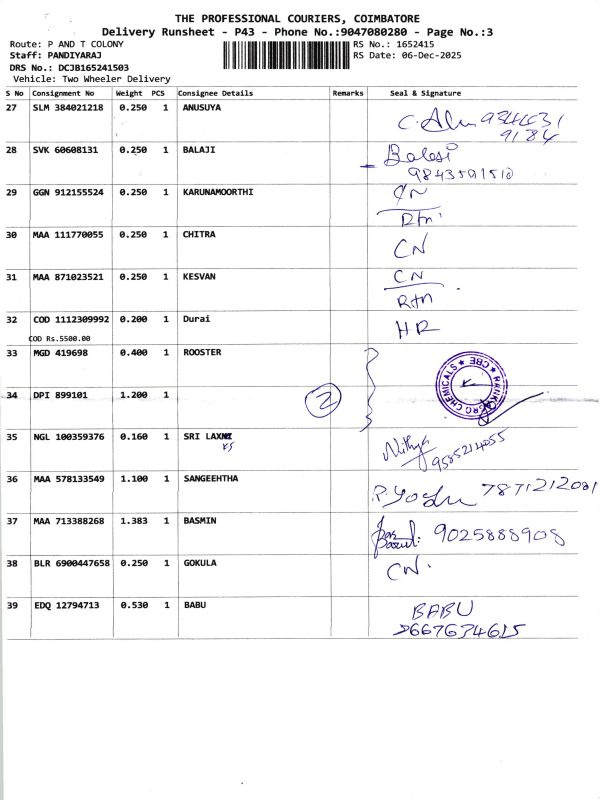 THE PROFESSIONAL COURIERS, COIMBATORE
Delivery Runsheet - P43 - Phone No.:9047080280 - Page No.:3
Route: P AND T COLONY
RS No.: 1652415
Staff: PANDIYARAJ
RS Date: 06-Dec-2025
DRS No.: DCJB165241503
Vehicle: Two Wheeler Delivery
S No Consignment No Weight PCS Consignee Details Remarks Seal & Signature
27 SLM 384021218 0.250 1 ANUSUYA
9344631
9184
28 SVK 60608131 0.250 1 BALAJI Balaji
9843591510
29 GGN 912155524 0.250 1 KARUNAMOORTHI CN
Rtn
30 MAA 111770055 0.250 1 CHITRA CN
31 MAA 871023521 0.250 1 KESVAN CN
Rtn
32 COD 1112309992 0.200 1 Durai HR
COD Rs.5500.00
33 MGD 419698 0.400 1 ROOSTER
34 DPI 899101 1.200 1 2
CHEMICALS ★ CBE ★
35 NGL 100359376 0.160 1 SRI Nithya
9585214055
36 MAA 578133549 1.100 1 SANGEEHTHA 7871212001
37 MAA 713388268 1.383 1 BASMIN 9025888908
38 BLR 6900447658 0.250 1 GOKULA CN.
39 EDQ 12794713 0.530 1 BABU BABU
7667634615